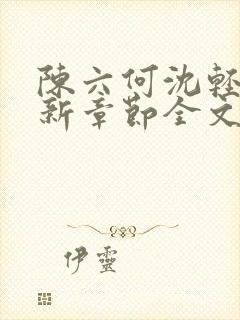 陳六何沈輕
新章節全文
伊靈